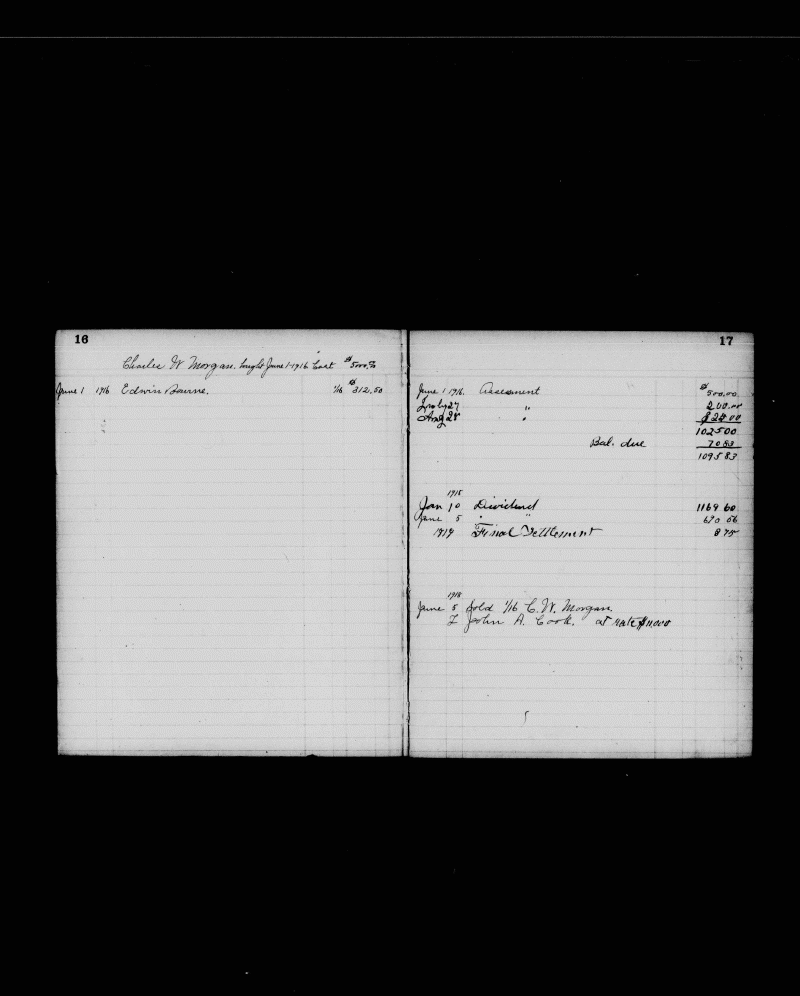 16
Charles W Morgan. bought June 1-1916 Cost $5000.00
June 1 1916 Edwin Bourne. 1/16 $312.50
17
June 1 1916. Assessment $500.00
July 27 " 200.00
Aug 28 "
102500
Bal. due 7083
109583
1918
Jan 10 Dividend 1169 60
June 5 " " 670 56
1919 Final Settlement 8 75
1918
June 5 Sold 1/16 C. W. Morgan.
John A. Cook. at rate $11000